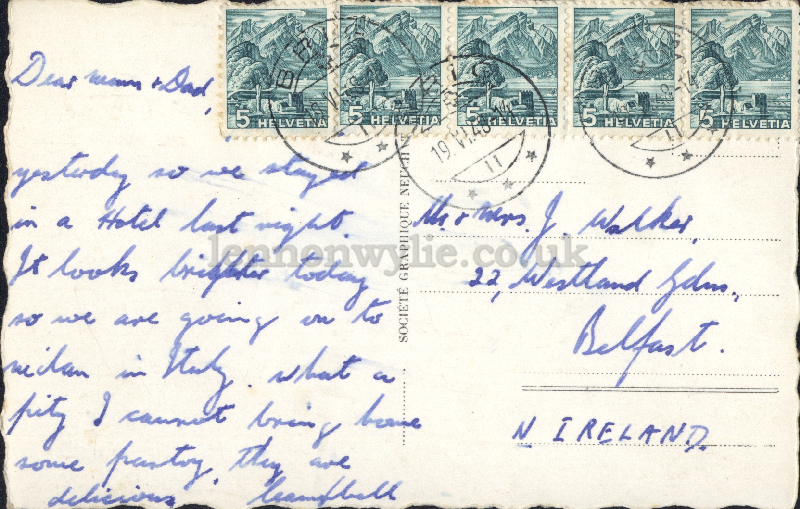 Dear mum & Dad,
yesterday so we stayed
in a Hotel last night.
It looks brighter today
so we are going on to
milan in Italy. what a
pity I cannot bring home
some pastry, they are
delicious Campbell
5 HELVETIA
5 HELVETIA
5 HELVETIA
5 HELVETIA
5 HELVETIA
19 VI 48
11
SOCIÉTÉ GRAPHIQUE NEUCH
Mr. & Mrs. J. Walker,
22, Westland Gdns.,
Belfast.
N IRELAND.
lennonwylie.co.uk